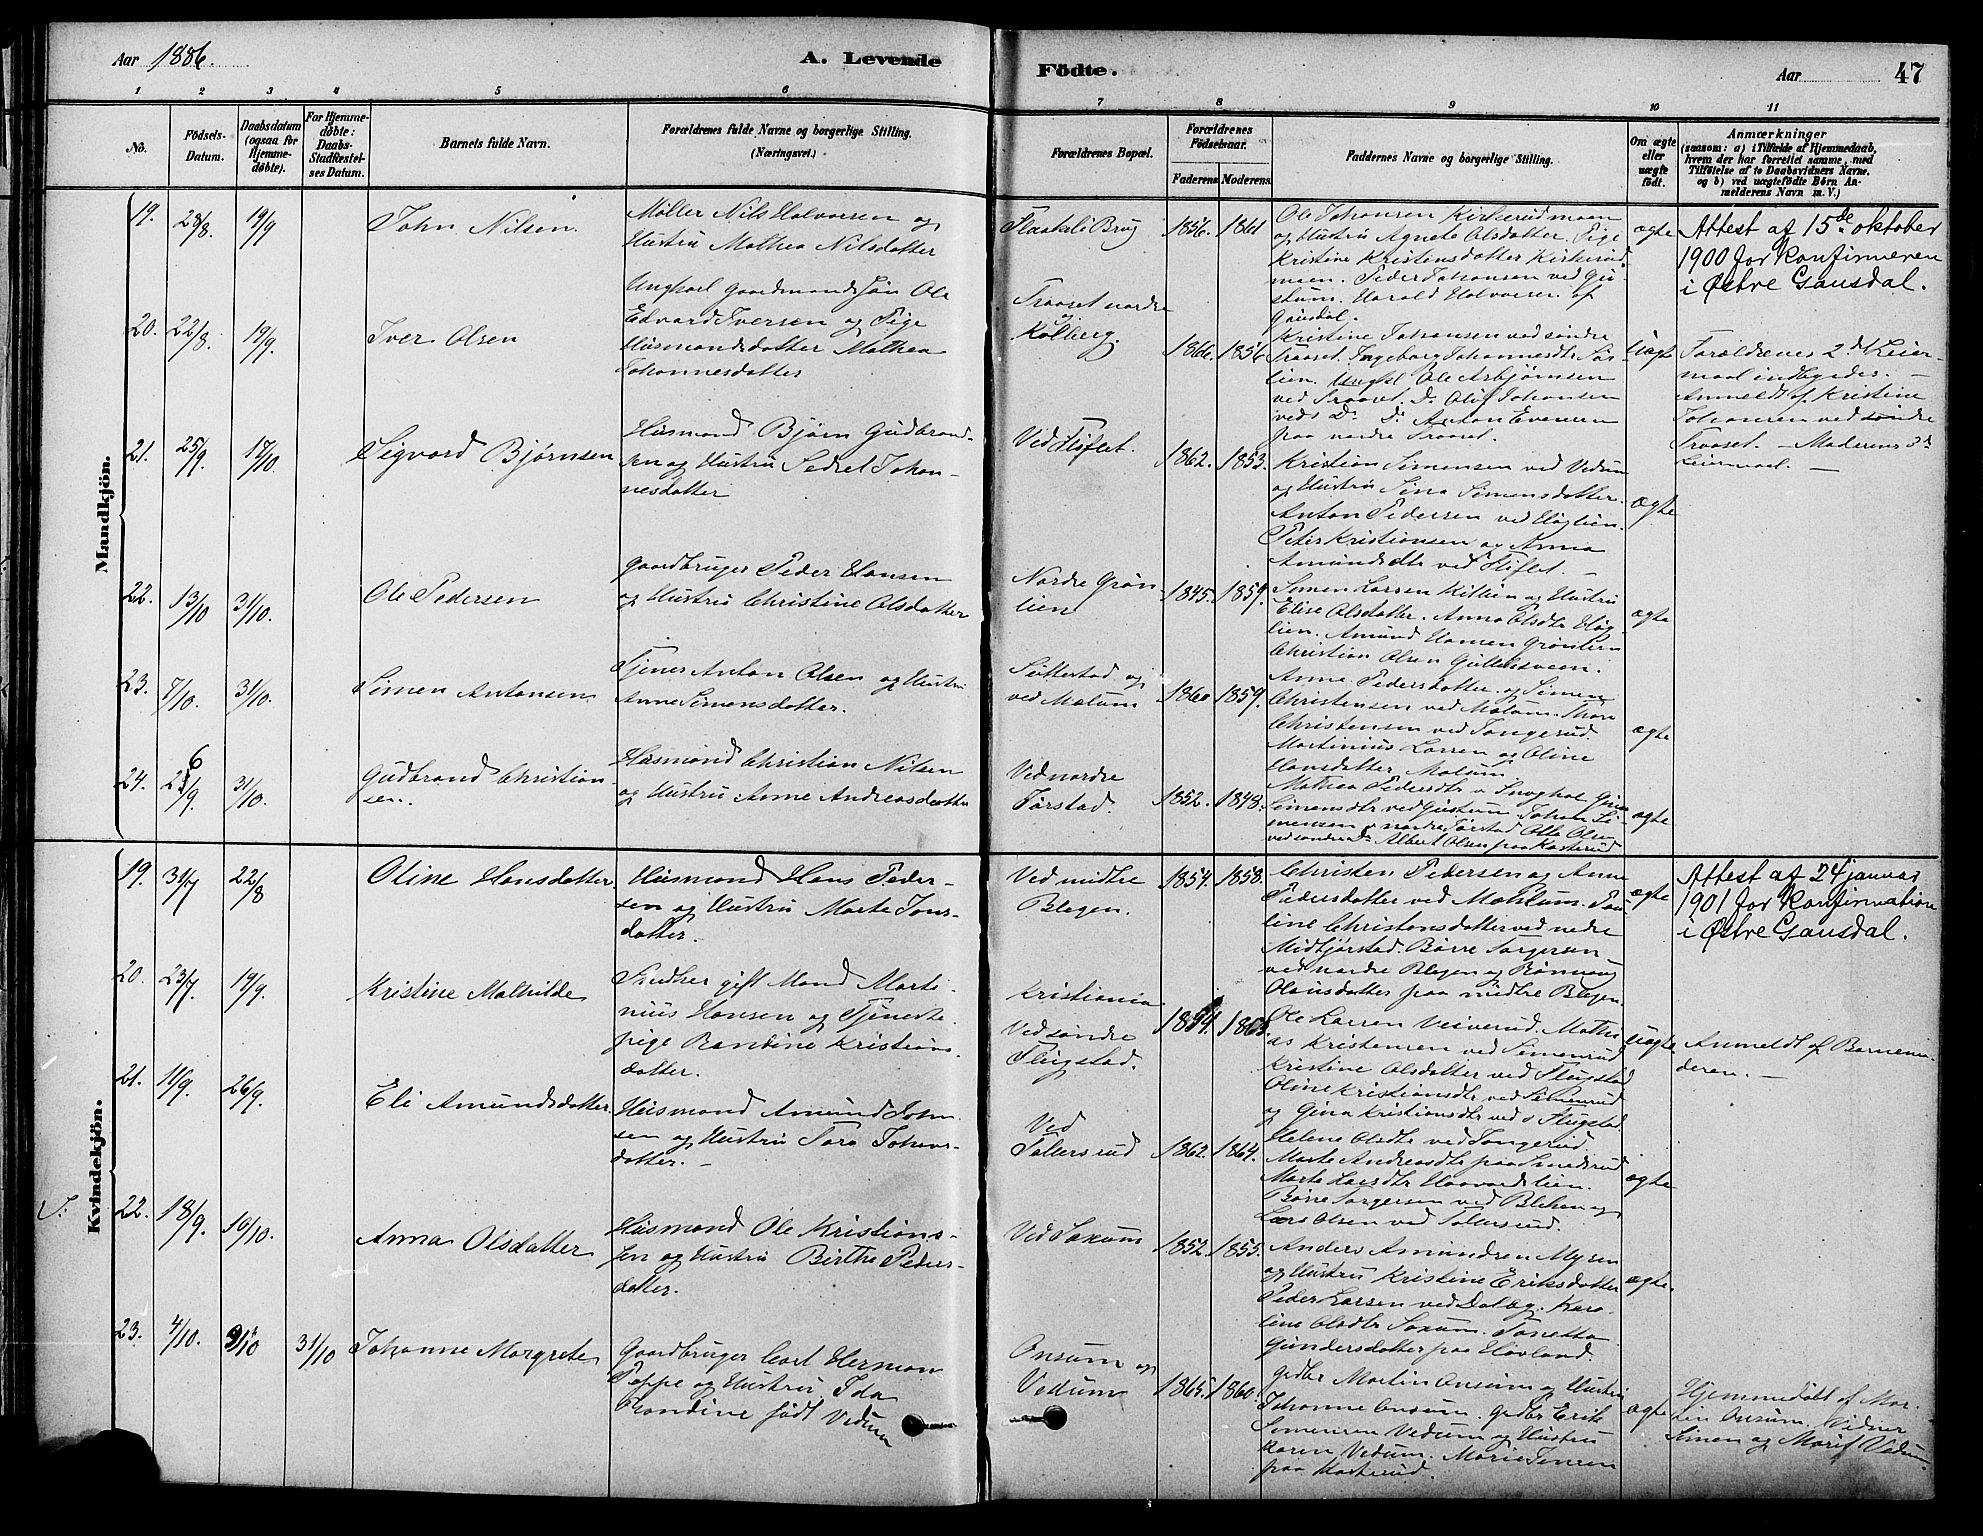 Aar 1886. A. Levende
Födte. Aar 47
1 2 3 4 5 6 7 8 9 10 11
No.
Födsels-
Datum.
Daabsdatum
(ogsaa for
Hjemme-
döbte).
For Hjemme-
döbte:
Daabs-
Stadfæstel-
ses Datum.
Barnets fulde Navn.
Forældrenes fulde Navne og borgerlige Stilling.
(Næringsvei.)
Forældrenes Bopæl.
Forældrenes
Födselsaar.
Faderens Moderens.
Faddernes Navne og borgerlige Stilling.
Om ægte
eller
uægte
födt.
Anmærkninger
(saasom: a) i Tilfælde af Hjemmedaab,
hvem der har forrettet samme, med
Tilföielse af to Daabsvidners Navne.
og b) ved uægtefödte Börn An-
melderens Navn m. V.)
Mandkjön.
19. 28/8. 19/9 John Nilsen.
Møller Nils Halvorsen og
Hustru Mathea Nilsdatter
Brug 1856. 1861
Ole Johansen Kirkerudmoen
og Hustru Agnete Olsdatter. Pige
Kristine Kristensdatter Kirkerud
moen. Peder Johansen ved Gu-
stum. Harald Halvorsen. af
Gausdal.
ægte
Attest af 15de oktober
1900 for Konfirmeren
i Østre Gausdal.
20. 22/8. 19/9. Iver Olsen
Ungkarl Gaardmandssøn Ole
Edvard Iversen og Pige
Husmandsdatter Mathea
Johannesdatter
Traaset nordre
og
Kolberg.
1866. 1856
Kristine Johansen ved søndre
Traaset. Ingeborg Johannesdtr
lien. Ole Asbjørnsen
ved Traaset. D. Oluf Johansen
veds D. D. Anton Evensen
paa nordre Traaset.
Uægte
Forældrenes 2d Leier-
maal indbyrdes. —
Anmeldt af Kristine
Johansen ved søndre
Traaset. — Moderens 3d
Leiermaal. —
21. 25/9. 17/10. Sigvard Bjørnsen
Husmand Bjørn Gudbrand-
sen og Hustru Johan-
nesdatter
Ved Fliflet. 1862. 1853.
Kristian Simensen ved Vedum
og Hustru Sina Simensdatter.
Anton Pedersen ved Høglien.
Peter Kristiansen og Anna
Amundsdtr ved Fliflet. —
Ægte
22. 13/10 31/10. Ole Pedersen
Gaardbruger Peder Hansen
og Hustru Christine Olsdatter
Nordre Grøn
lien
1845. 1859.
Simen Larsen og Hustru
Elise Olsdatter. Anna Olsdtr Høg-
lien. Amund Hansen Grønlien
Christian Olsen
ægte
23. 7/10. 31/10. Simen Antonsen
Tjener Anton Olsen og Hustru
Anne Simensdatter.
og
ved Mælum
1860 1859.
Anne Pedersdatter og Simen
Christensen ved Mælum. Thore
Christensen ved Tangerud.
Martinius Larsen og Oline
Hansdatter Mælum.
ægte
24. 26/9 31/10. Gudbrand Christian-
sen.
Husmand Christian Nilsen
og Hustru Anne Andreasdatter
Ved nordre
Jørstad.
1852. 1848.
Mathea Pedersdtr Gina
Simensdtr ved Gustum. Johan Si-
mensen v nordre Jørstad Olle Olsen
ved søndre D. Albert Olsen paa Kasterud
ægte
Kvindekjön.
19. 31/7 22/8 Oline Hansdatter
Husmand Hans Peder-
sen og Hustru Marte Jons-
datter.
Ved midtre
Blegen.
1854. 1858.
Christen Pedersen og Anne
Pedersdatter ved Mæhlum. Pau-
line Christensdatter ved nedre
Midtjørstad. Børre Torgersen
ved nordre Blegen og Rønnaug
Olausdatter paa midtre Blegen.
ægte
Attest af 24 januar
1901 for Konfirmation
i Østre Gausdal.
20. 23/7. 19/9. Kristine Mathilde
gift Mand Marti-
nius Hansen og Tjeneste-
pige Randine Kristians-
datter.
Kristiania
Ved søndre
Flugstad.
1854. 1863.
Ole Larsen Mathi-
as Kristensen ved Simenrud
Kristine Olsdatter ved Flugstad
Oline Kristiansdtr ved Simenrud
og Gina Kristiansdtr ved s Flugstad
uægte
Anmeldt af Barnemo-
deren. —
21. 11/9. 26/9. Eli Amundsdatter.
Husmand Amund John-
sen og Hustru Tora Johans-
datter. —
Ved
Tollersrud
1862. 1864.
Helene Olsdtr ved Tangerud.
Marte Andreasdtr paa Smedsrud
Marte Larsdtr Haavardslien.
Børre Torgersen ved Blehen og
Lars Olsen ved Tollersrud.
ægte
S. 22. 18/9. 10/10. Anna Olsdatter
Husmand Ole Kristian-
sen og Hustru Birthe Peders-
datter.
Ved Saxum 1852. 1855.
Anders Amundsen Myren
og Hustru Kristine Eriksdatter
Peder Larsen ved Dalbg. Karo-
line Olsdtr Saxum. Tonetta
Gundersdatter paa Hovland.
ægte.
23. 4/10. 9/10 31/10 Johanne Margrete
Gaardbruger Carl Herman
Poppe og Hustru Ida
Randine født Vedum
Onsum og
Vedum
1865. 1860.
Gdbr Martin Onsum og Hustru
Johanne Onsum. Gdbr Erik
Simensen Vedum og Hustru
Karen Vedum. Marie Jensen
paa Kasterud.
ægte
Hjemmedøbt af Mar-
tin Onsum. Vidner
Simen og Marit Vedum.